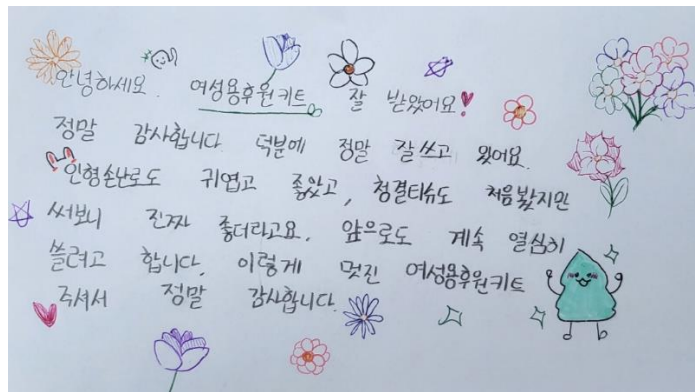 안녕하세요. 여성용후원키트 잘 받았어요!
정말 감사합니다 덕분에 정말 잘 쓰고 있어요.
인형손난로도 귀엽고 좋았고, 청결티슈도 처음 봤지만
써보니 진짜 좋더라고요. 앞으로도 계속 열심히
쓸려고 합니다. 이렇게 멋진 여성용후원키트
주셔서 정말 감사합니다.